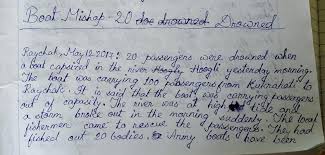 Boat Mishap - 20 drowned Drowned
Raychak, May 12 2017: 20 passengers were drowned when
a boat capsized in the river Hoogly Hoogli yesterday morning.
The boat was carrying 100 passengers from Kukrahati to
Raychak. It is said that the boat was carrying passengers
out of capacity. The river was at high tide and
a storm broke out in the morning suddenly. The local
fishermen came to rescue the passengers. They had
fished out 20 bodies. Army boats have been